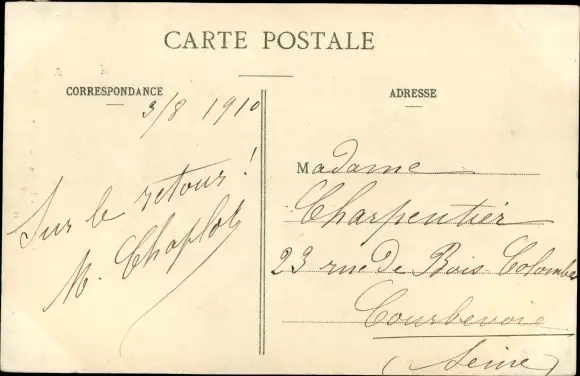 CARTE POSTALE
CORRESPONDANCE
3/8 1910
Sur le retour!
M. Chaplot
ADRESSE
Madame
Charpentier
23 rue De Bois Colombe
Courbevoie
(Seine)